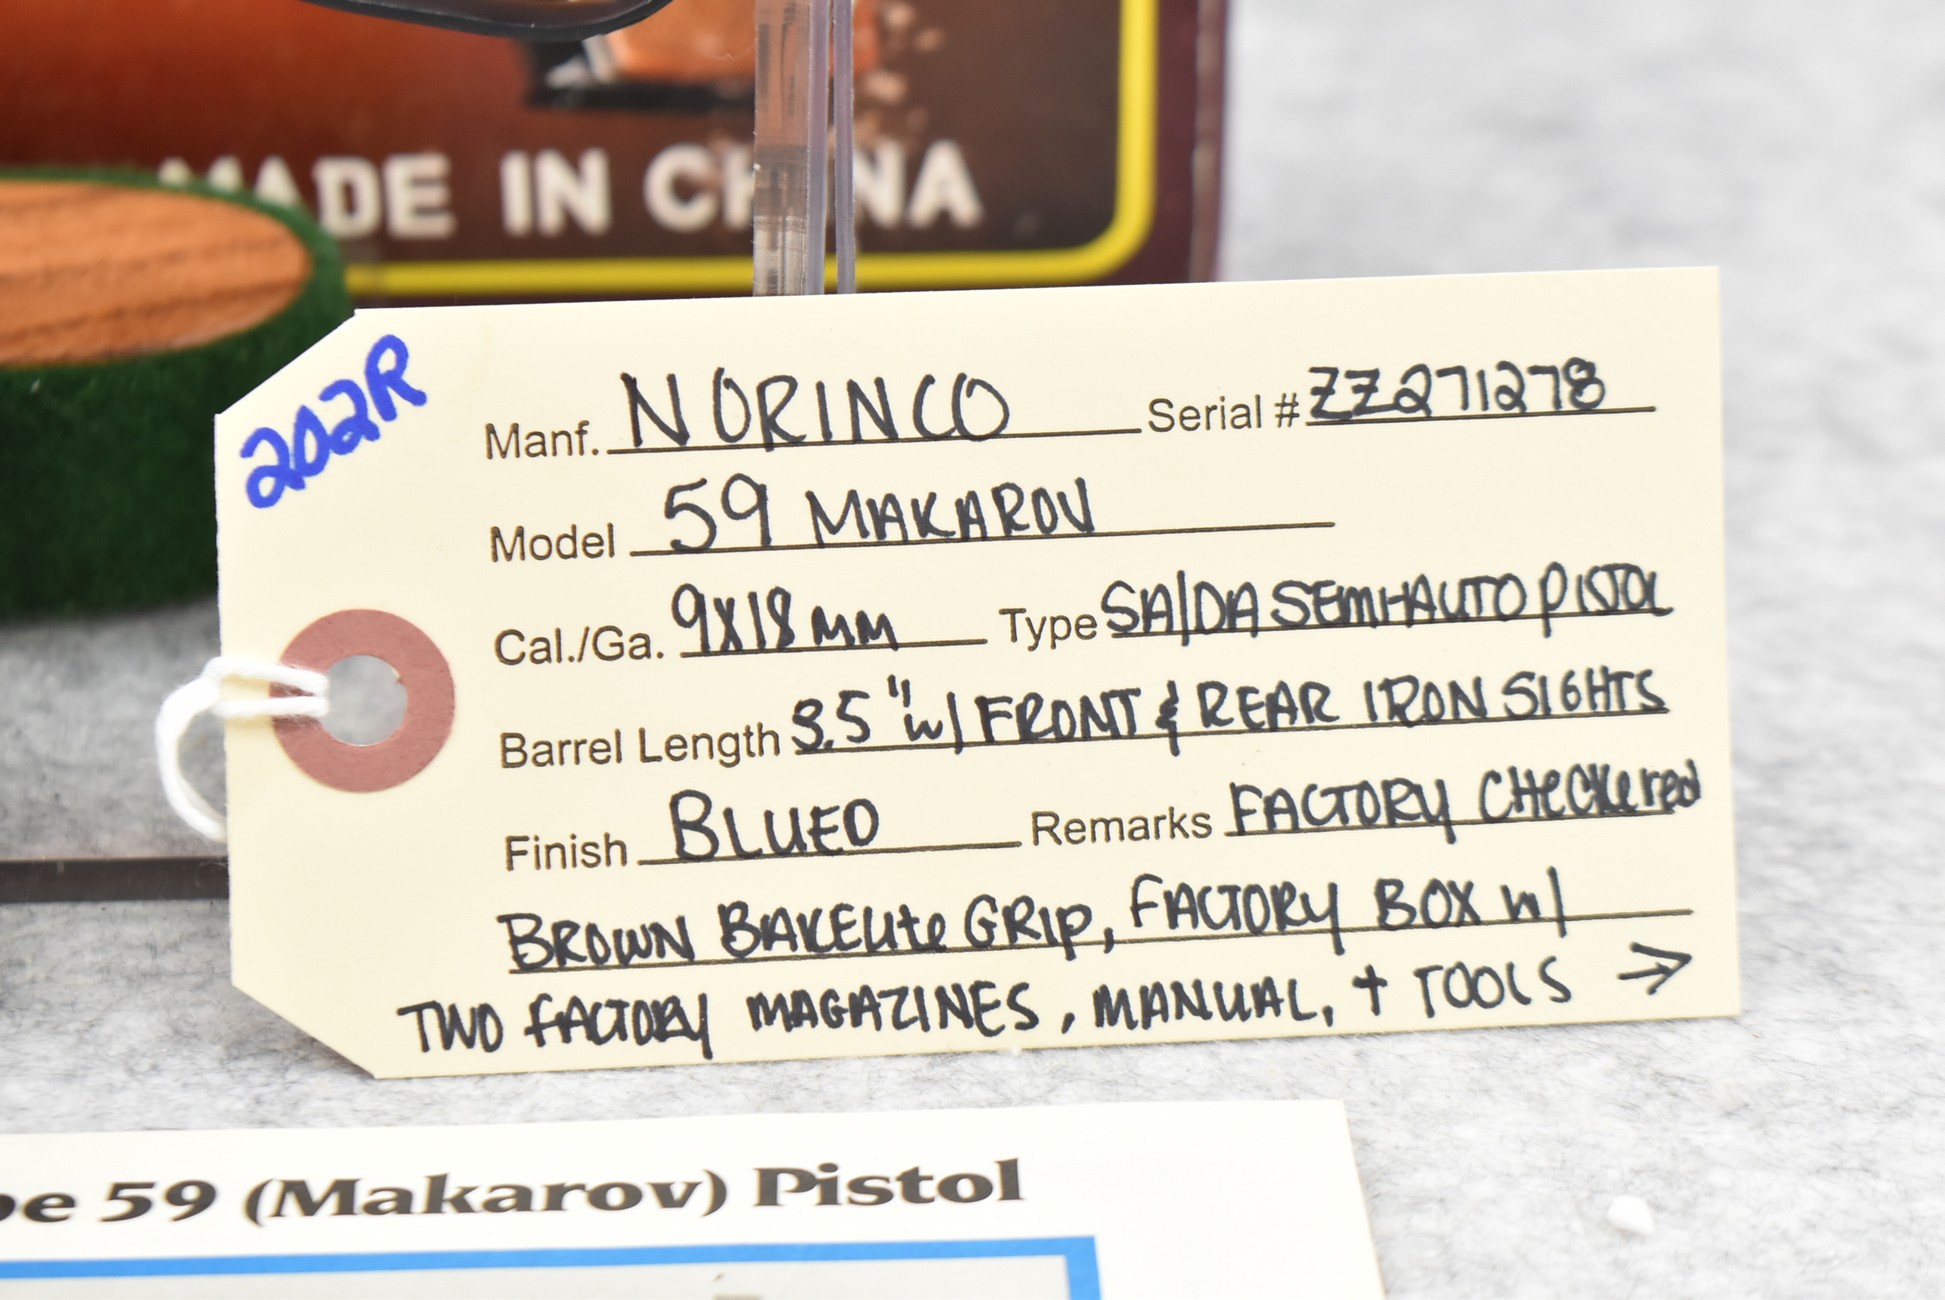 MADE IN CHINA
202R
Manf. NORINCO Serial # ZZ271278
Model 59 MAKAROV
Cal./Ga. 9X18MM Type SA/DA SEMI-AUTO PISTOL
Barrel Length 3.5" w/ FRONT & REAR IRON SIGHTS
Finish BLUED Remarks FACTORY CHeCKered
BROWN BAKELIte GRIP, FACTORY BOX w/
TWO FACTORY MAGAZINES, MANUAL, + TOOLS →
pe 59 (Makarov) Pistol